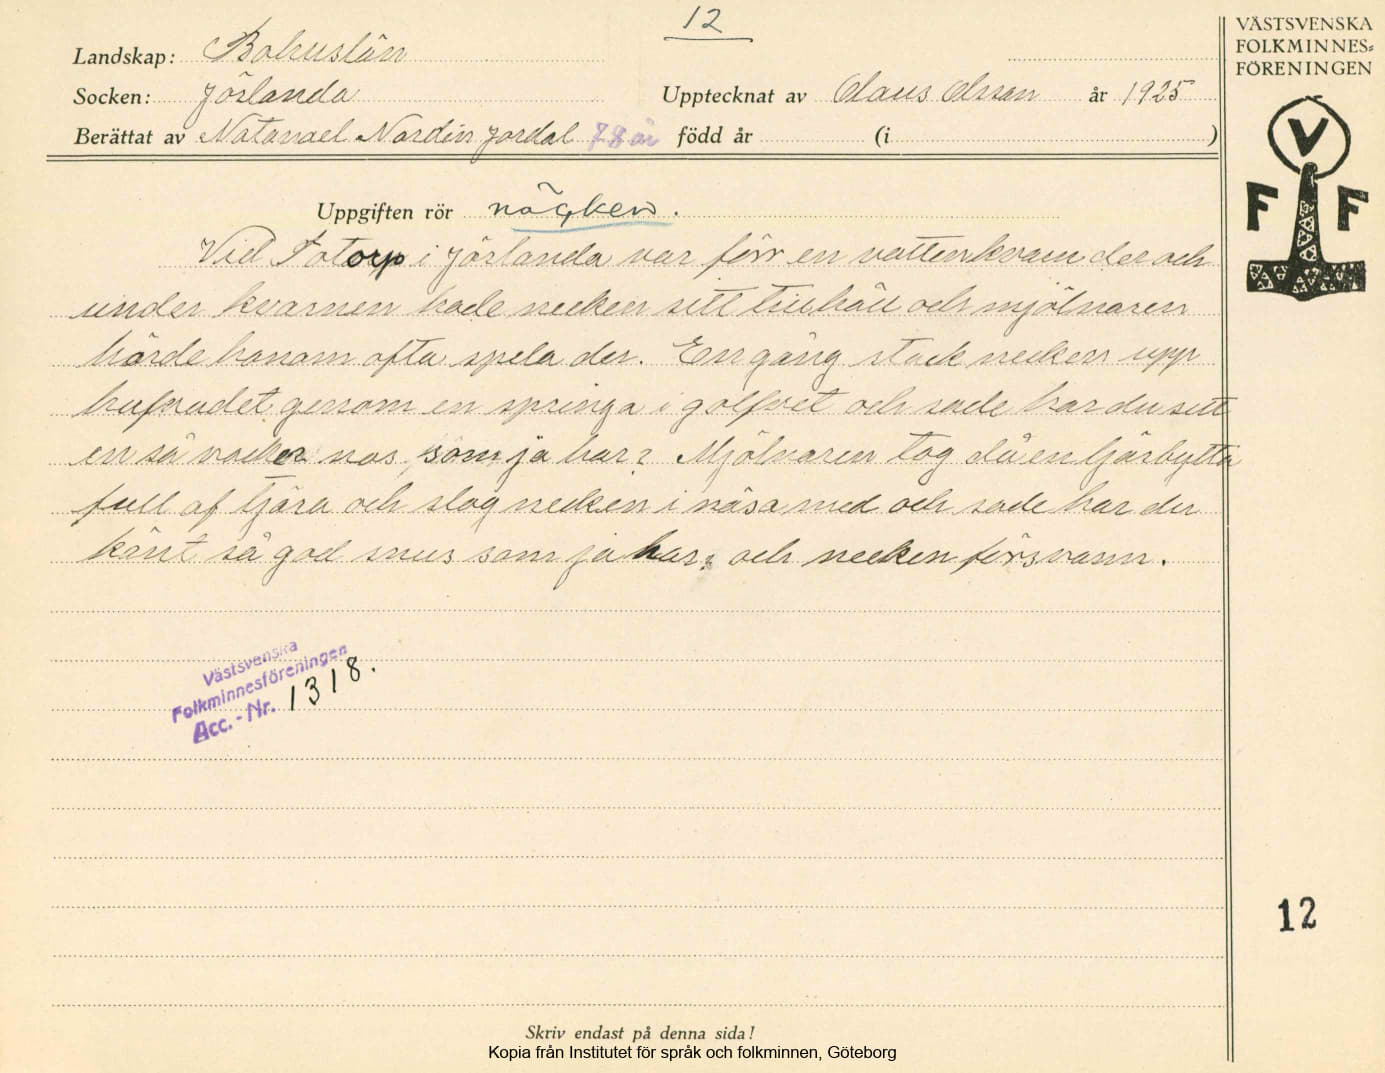 12
VÄSTSVENSKA
FOLKMINNES=
FÖRENINGEN
Landskap: Bohuslän
Socken: Jörlanda
Upptecknat av Olaus Olsson år 1925
Berättat av Natanael Nordin Jordal 78 år född år (i )
V
F F
Uppgiften rör näcken.
Vid Totorp i Jörlanda var förr en vattenkvarn der och
under kvarnen hade necken sitt tillhåll och mjölnaren
hörde honom ofta spela der. En gång stack necken upp
hufvudet genom en springa i golfvet och sade har du sett
en så vacker nos som ja har? Mjölnaren tog då en tjärbytta
full af tjära och slog necken i näsa med och sade har du
känt så god snus som ja har? och necken försvann.
Västsvenska
Folkminnesföreningen
Acc.-Nr. 1318.
12
Skriv endast på denna sida!
Kopia från Institutet för språk och folkminnen, Göteborg